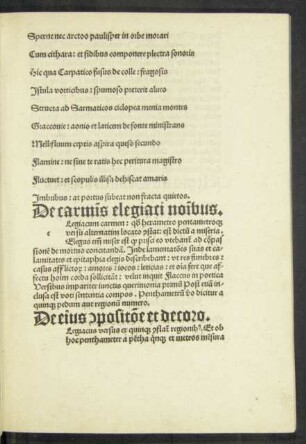 Spernit nec arctoo paulisper in orbe morari
Cum cithara: et fidibus componere plectra sonoris
Hic qua Carpatico fusus de colle: fragosis
Istula vorticibus: spumoso preterit alueo
Structa ad Sarmaticos ciclopea menia montes
Graccouie: aonio et laticem de fonte ministrans
Mellifluum ceptis aspira queso secundo
Flamine: ne sine te ratis hec peritura magistro
Fluctuet: et scopulis illisa dehiscat amaris
Imbribus: at portus subeat non fracta quietos.
De carmīs elegiaci noībus.
Legiacum carmen: qđ hexametro pentametroqꝫ
e vsu alternatim locato ꝯstat: est dictū a miseria.
Elegus em̄ miser est
sione de motus concitandā. Inde lamentatiōes suas et ca
lamitates et epitaphia elegis describebant: vt res funebres:
casus afflictos: amores: iocos: leticias: et oīa fere que af
fectu hoīm corda sollicitāt: velut inquit Flaccus in poetica
Versibus impariter iunctis querimonia primū Post etiā in
clusa est voti sententia compos. Penthametrū vo dicitur a
quinqꝫ pidum aut regionū numero.
De eius ꝯpositōe et decoro.
Legiacus versus ex quinqꝫ ꝯstat regionibꝰ. Et ob
hoc penthameter a pētha qnqꝫ et metros mēsura